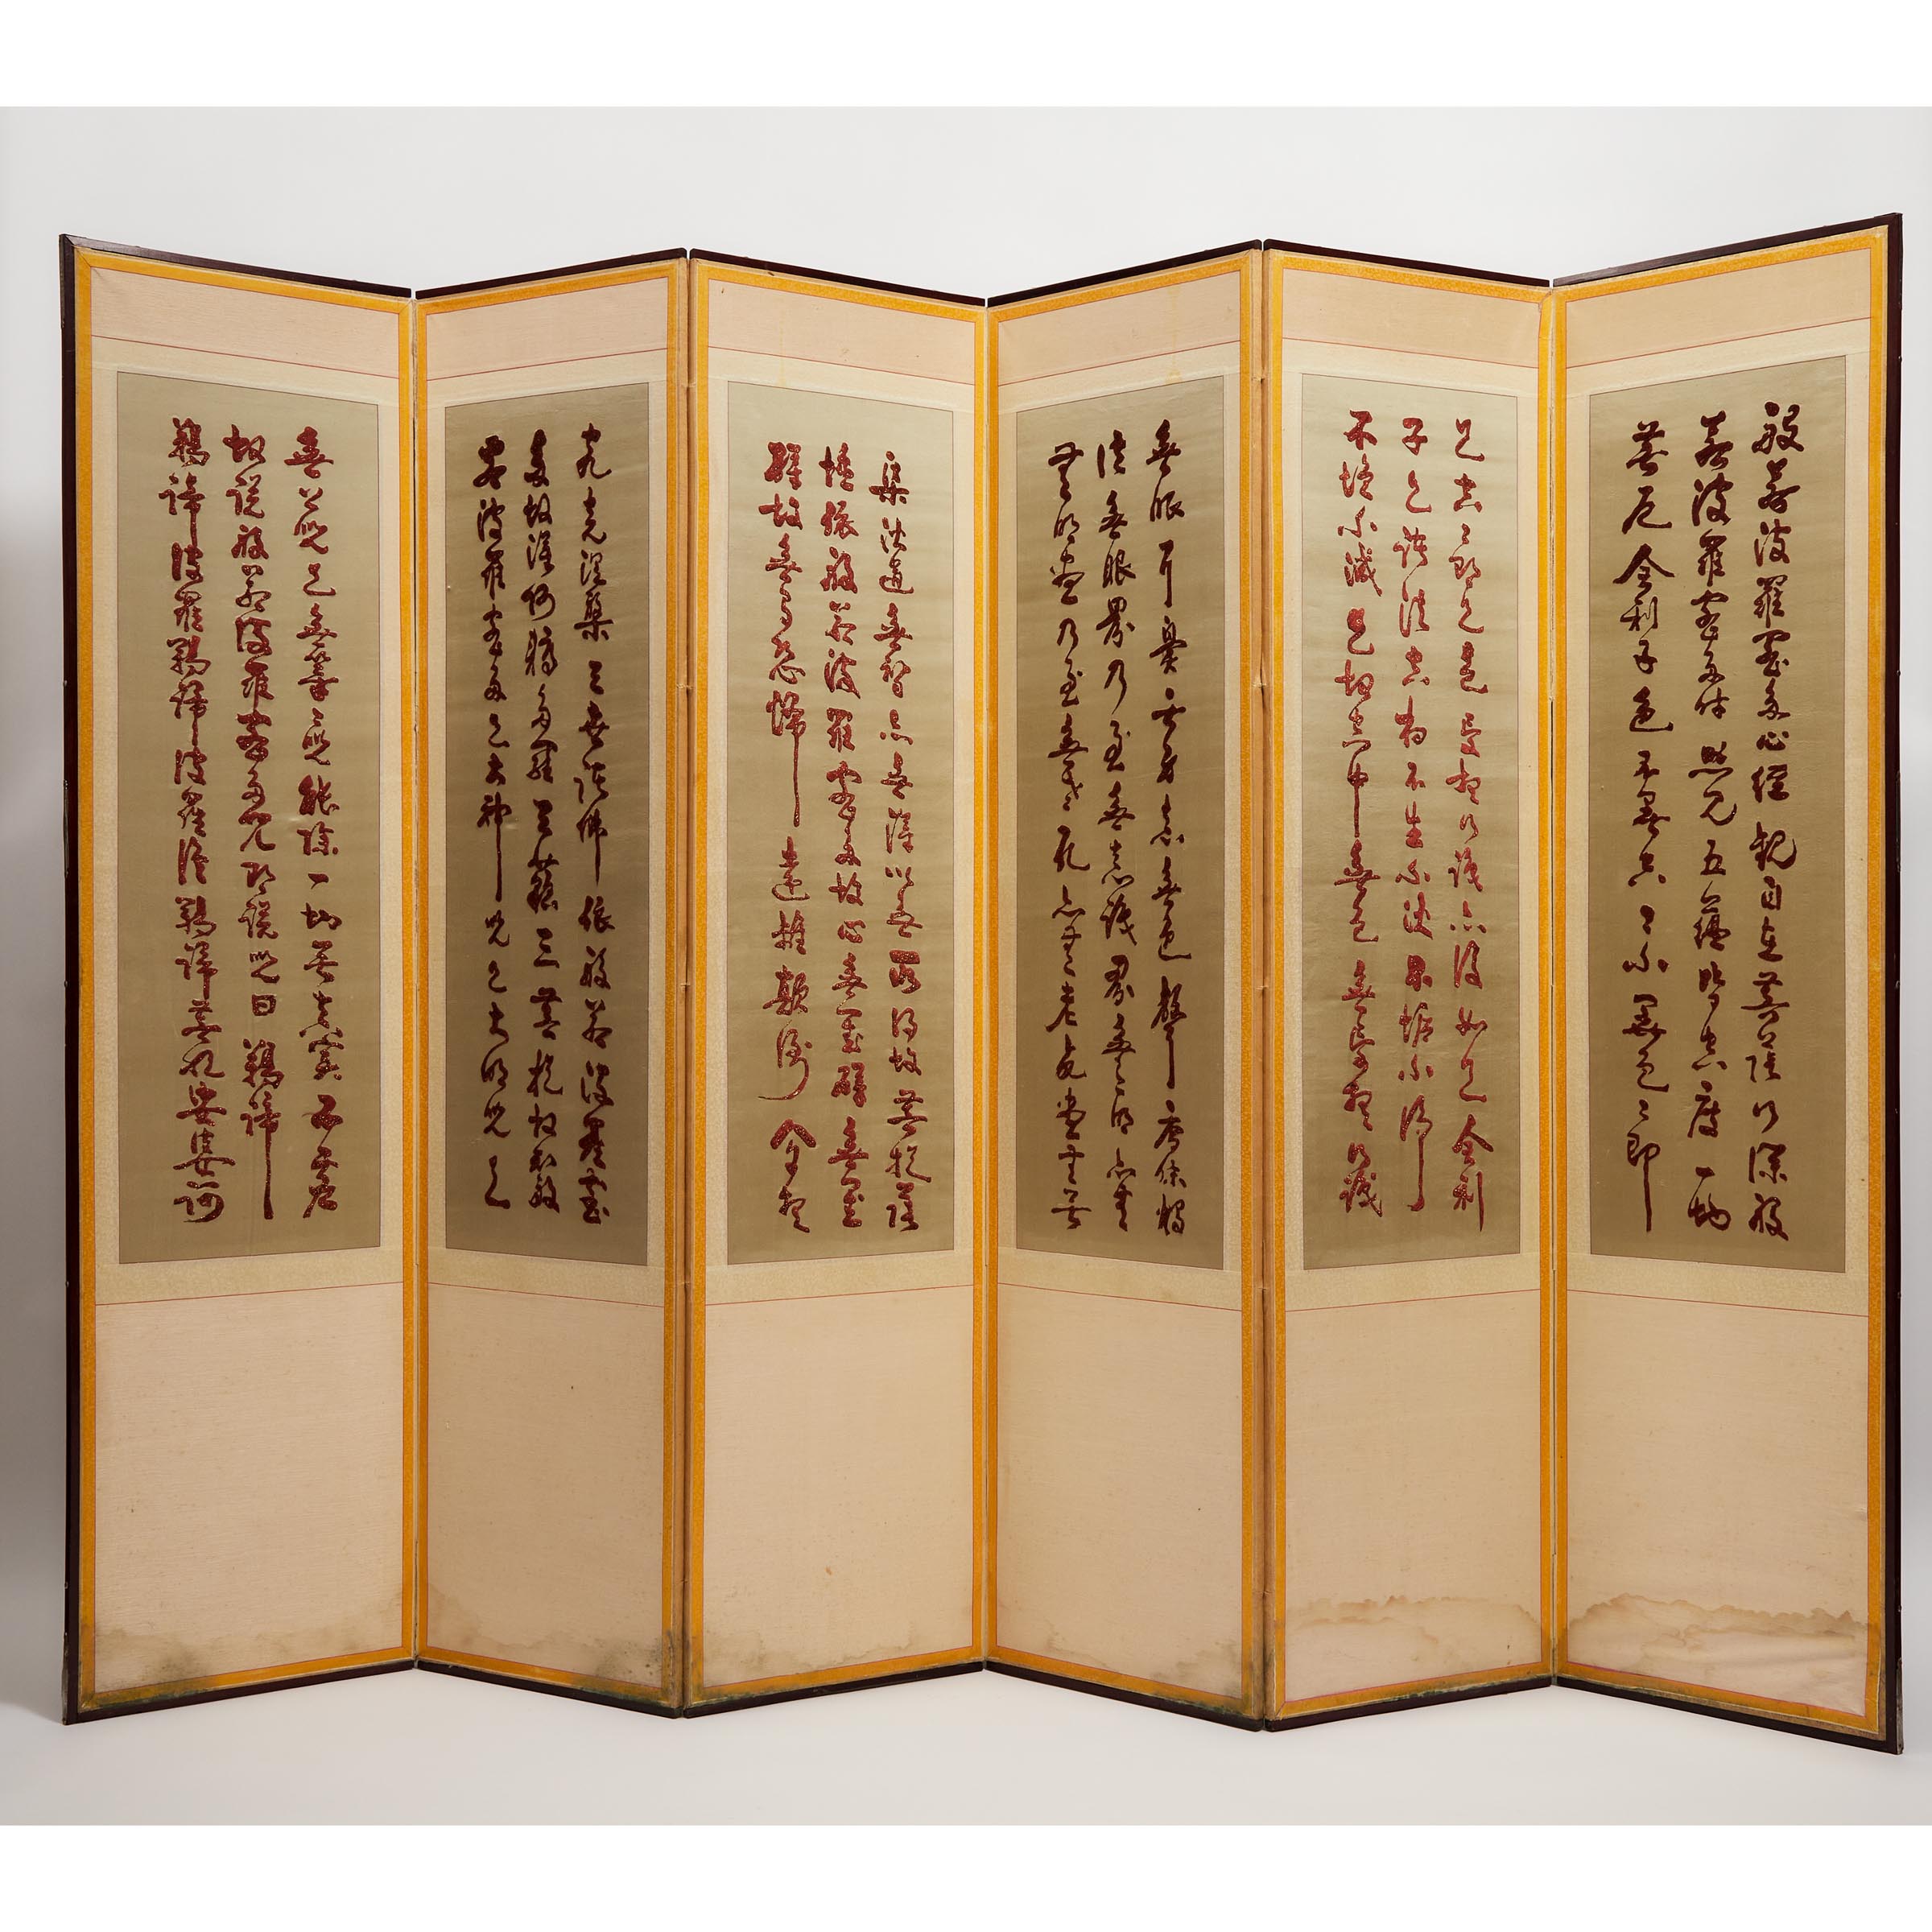 般若波羅蜜多心經 觀自在菩薩行深般
若波羅蜜多時 照見五蘊皆空度一切
苦厄 舍利子色不異空空不異色色即
是空空即是色 受想行識亦復如是舍利
子是諸法空相不生不滅不垢不淨
不增不減 是故空中無色 無受想行識
無眼耳鼻舌身意無色聲 香味觸
法無眼界乃至無意識界無無明亦無
無明盡乃至無老死亦無老死盡無苦
集滅道無智亦無得以無所得故菩提薩
埵依般若波羅蜜多故心無罣礙無罣
礙故無有恐怖 遠離顛倒 夢想
究竟涅槃 三世諸佛 依般若波羅蜜
多故得阿耨多羅三藐三菩提故知般
若波羅蜜多是大神呪是大明呪是
無上呪是無等等呪能除一切苦真實不虛
故說般若波羅蜜多呪即說呪曰 揭諦
揭諦波羅揭諦波羅僧揭諦菩提娑婆訶